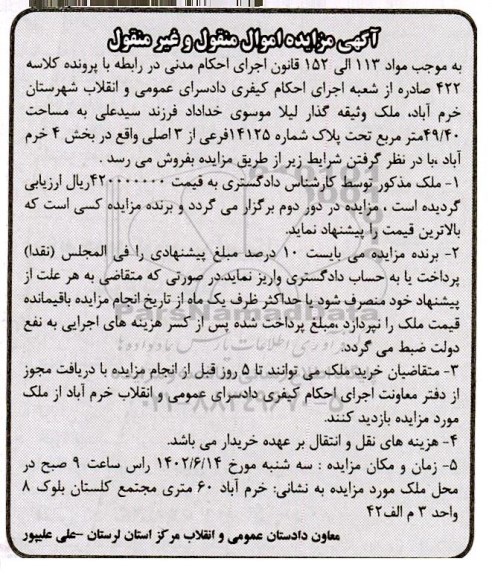 آگهی مزایده اموال منقول و غیر منقول
به موجب مواد ۱۱۳ الی ۱۵۲ قانون اجرای احکام مدنی در رابطه با پرونده کلاسه
۴۲۲ صادره از شعبه اجرای احکام کیفری دادسرای عمومی و انقلاب شهرستان
خرم آباد، ملک وثیقه گذار لیلا موسوی خداداد فرزند سیدعلی به مساحت
۴۹/۴۰متر مربع تحت پلاک شماره ۱۴۱۲۵فرعی از ۳ اصلی واقع در بخش ۴ خرم
آباد ،با در نظر گرفتن شرایط زیر از طریق مزایده بفروش می رسد .
۱- ملک مذکور توسط کارشناس دادگستری به قیمت ۴۲۰۰۰۰۰۰۰۰ریال ارزیابی
گردیده است ، مزایده در دور دوم برگزار می گردد و برنده مزایده کسی است که
بالاترین قیمت را پیشنهاد نماید.
۲- برنده مزایده می بایست ۱۰ درصد مبلغ پیشنهادی را فی المجلس (نقدا)
پرداخت یا به حساب دادگستری واریز نماید.در صورتی که متقاضی به هر علت از
پیشنهاد خود منصرف شود یا حداکثر ظرف یک ماه از تاریخ انجام مزایده باقیمانده
قیمت ملک را نپردازد ،مبلغ پرداخت شده پس از کسر هزینه های اجرایی به نفع
دولت ضبط می گردد.
۳- متقاضیان خرید ملک می توانند تا ۵ روز قبل از انجام مزایده با دریافت مجوز
از دفتر معاونت اجرای احکام کیفری دادسرای عمومی و انقلاب خرم آباد از ملک
مورد مزایده بازدید کنند.
۴- هزینه های نقل و انتقال بر عهده خریدار می باشد.
۵- زمان و مکان مزایده : سه شنبه مورخ ۱۴۰۲/۶/۱۴ راس ساعت ۹ صبح در
محل ملک مورد مزایده به نشانی: خرم آباد ۶۰ متری مجتمع گلستان بلوک ۸
واحد ۳ م الف۴۲
معاون دادستان عمومی و انقلاب مرکز استان لرستان -علی علیپور
ParsNamadData